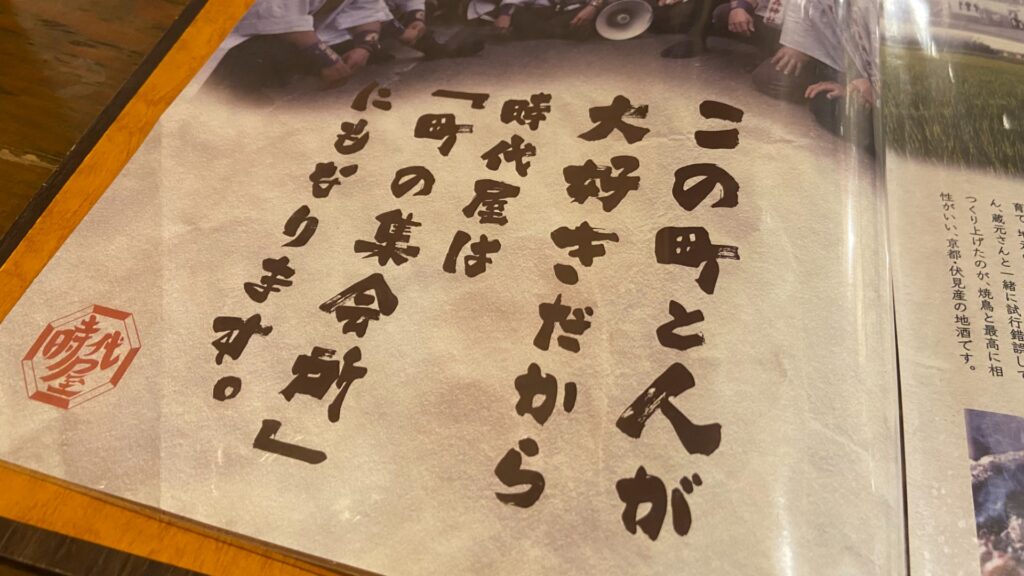 この町と人が
大好きだから
時代屋は
「町の集会所」
にもなります。
時代屋
ん、蔵元さんと一緒に試行錯誤して
つくり上げたのが、焼鳥と最高に相
性がいい、京都・伏見産の地酒です。